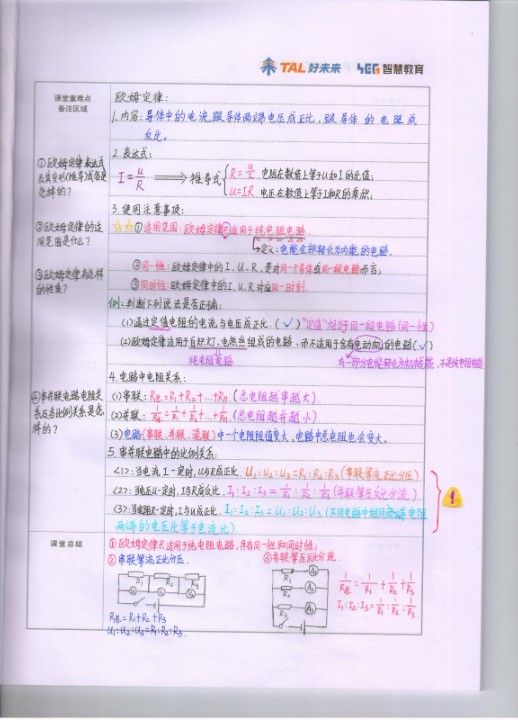 TAL 好未来 智慧教育
课堂重难点
备注区域
欧姆定律:
1.内容:导体中的电流,跟导体两端电压成正比,跟导体的电阻成
反比。
①欧姆定律表达式
及其变形(推导)式各是
怎样的?
2.表达式:
I=U/R ⟹ 推导式
R=U/I 电阻在数值上等于U和I的比值;
U=IR 电压在数值上等于I和R的乘积;
3.使用注意事项:
②欧姆定律的适
用范围是什么?
☆☆①适用范围:欧姆定律只适用于纯电阻电路.
定义:电能全部转化为内能的电路.
③欧姆定律有怎样
的性质?
②同一性:欧姆定律中的I、U、R,是对同一个导体或同一段电路而言;
③同时性:欧姆定律中的I、U、R对应同一时刻.
例:判断下列说法是否正确:
(1)通过定值电阻的电流与电压成正比.(✓)"定值"相对于同一段电路(同一性)
(2)欧姆定律适用于白炽灯、电热丝组成的电路,而不适用于含有电动机的电路(✓)
纯电阻电路
有一部分电能转化为机械能,不是纯电阻电路
4.电路中电阻关系:
④串并联电路电阻关
系及各比例关系是怎
样的?
(1)串联:R总=R1+R2+...+Rn(总电阻越串越大)
(2)并联:1/R总=1/R1+1/R2+...+1/Rn(总电阻越并越小)
(3)电路(串联、并联、混联)中一个电阻阻值变大,电路中总电阻也会变大。
5.串并联电路中的比例关系:
<1>:当电流I一定时,U与R成正比. U1:U2:U3=R1:R2:R3(串联等流正比分压)
<2>:当电压U一定时,I与R成反比. I1:I2:I3=1/R1:1/R2:1/R3(并联等压反比分流)
<3>:当电阻R一定时,I与U成正比. I1:I2:I3=U1:U2:U3(不同电路中相同电阻
两端的电压比等于电流比)
!
课堂总结
①欧姆定律只适用于纯电阻电路,具有同一性和同时性;
②串联等流正比分压.
③并联等压反比分流.
R1 R2 R3
V1 V2 V3
R总=R1+R2+R3
U1:U2:U3=R1:R2:R3.
R1 A1
R2 A2
R3 A3
1/R总=1/R1+1/R2+1/R3
I1:I2:I3=1/R1:1/R2:1/R3